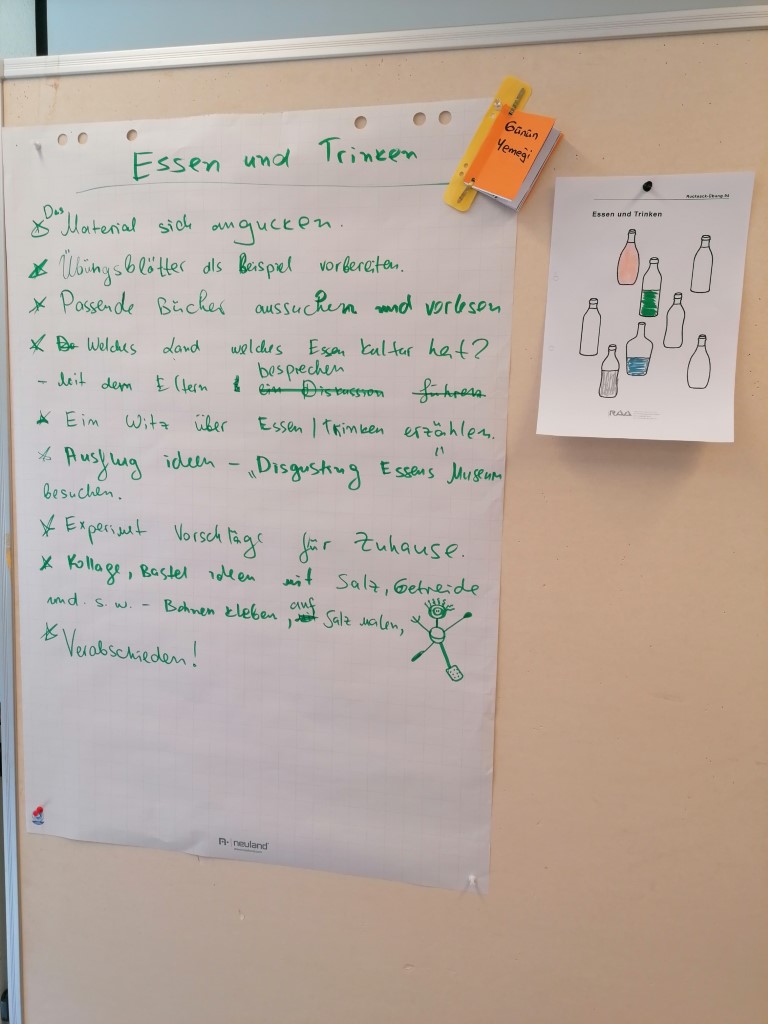 Essen und Trinken
Das
* Material sich angucken.
* Übungsblätter als Beispiel vorbereiten.
* Passende Bücher aussuchen und vorlesen
* Welches Land welches Essen Kultur hat?
besprechen
- Mit dem Eltern ein Diskussion führen
* Ein Witz über Essen/Trinken erzählen.
* Ausflug ideen - „Disgusting Essens" Museum
besuchen.
* Experimet Vorschläge für Zuhause.
* Kollage, Bastel ideen mit Salz, Getreide
und. s. w. - Bohnen kleben, auf Salz malen,
* Verabschieden!
neuland
Günün
Yemeği
Rucksack-Übung
Essen und Trinken
RAA